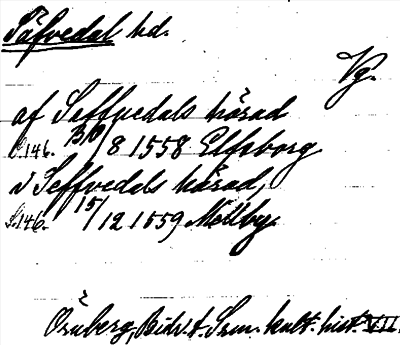 Säfvedal hd.
Vg.
af Seffuedals härad
S.146. 13/8 1558 Elfsborg
i Seffvedals härad,
S.146. 15/12 1559 Mellby.
Örnberg, Bidr. t. Sven. kult. hist. VII